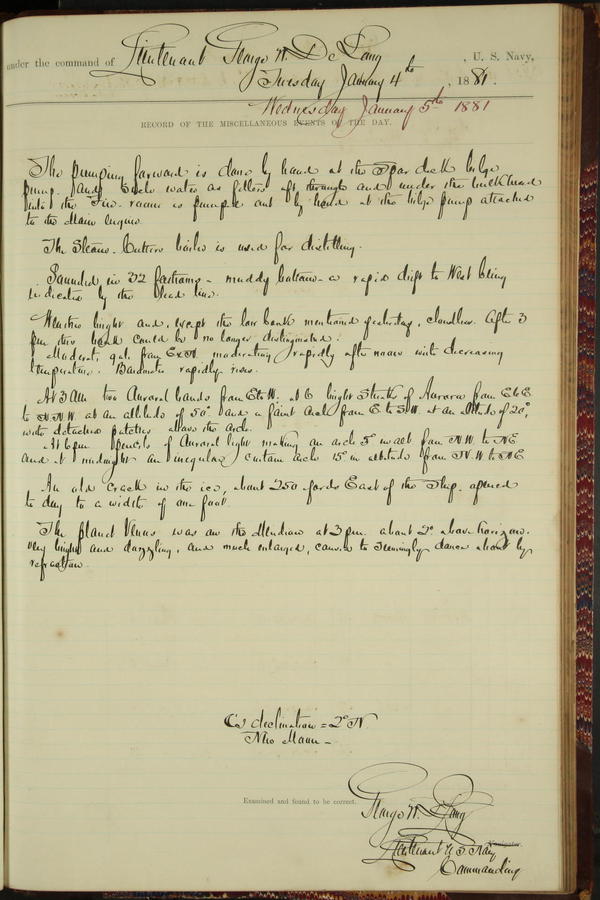 under the command of Lieutenant George W. De Long, U. S. Navy,
Tuesday January 4th, 1881.
Wednesday January 5th 1881
RECORD OF THE MISCELLANEOUS EVENTS OF THE DAY.
The pumping forward is done by hand at the Spar deck bilge
pump. And such water as filters aft through and under the bulkhead
into the Fire-room is pumped out by hand at the bilge pump attached
to the Main Engine.
The Steam-Cutters boiler is used for distilling.
Sounded in 32 fathoms - muddy bottom - a rapid drift to West being
indicated by the lead line.
Weather bright and, except the low bank mentioned yesterday, cloudless. After 3
pm this bank could be no longer distinguished.
Moderate gale from ExN. moderating rapidly after noon with decreasing
temperature. Barometer rapidly rises.
At 3 AM two Auroral bands from E to W. at 6 bright streaks of Aurora from EbE
to N.N.W. at an altitude of 50° and a faint arch from E to SW. at an altitude of 20°
with detached patches above the arch.
At 6 pm pencils of Auroral light making an arch 5° in alt from N.W. to NE
and at midnight an irregular curtain arch 15° in altitude from N.W to NE
An old crack in the ice, about 250 yards East of the Ship opened
to day to a width of one foot.
The planet Venus was on the Meridian at 3 pm. about 2° above horizon.
very bright and dazzling, and much enlarged, caused to seemingly dance about by
refraction.
declination = 2° N
New Moon -
Examined and found to be correct.
George W. De Long
Lieutenant U. S. Navy
Navigator.
Commanding